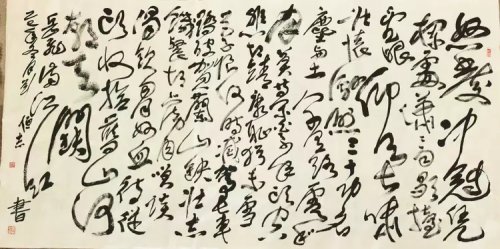 怒发冲冠凭
栏处潇潇雨歇抬
望眼仰天长啸
壮怀激烈三十功名
尘与土八千里路云
和月莫等闲白了少年头空
悲切靖康耻犹未雪
臣子恨何时灭驾长车
踏破贺兰山缺壮志
饥餐胡虏肉笑谈
渴饮匈奴血待从
头收拾旧山河
朝天阙
岳飞满江红
书